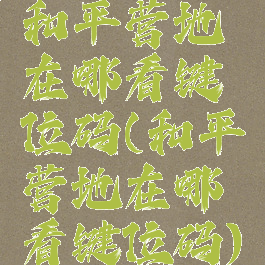 和平营地
在哪看键
位码(和平
营地在哪
看键位码)